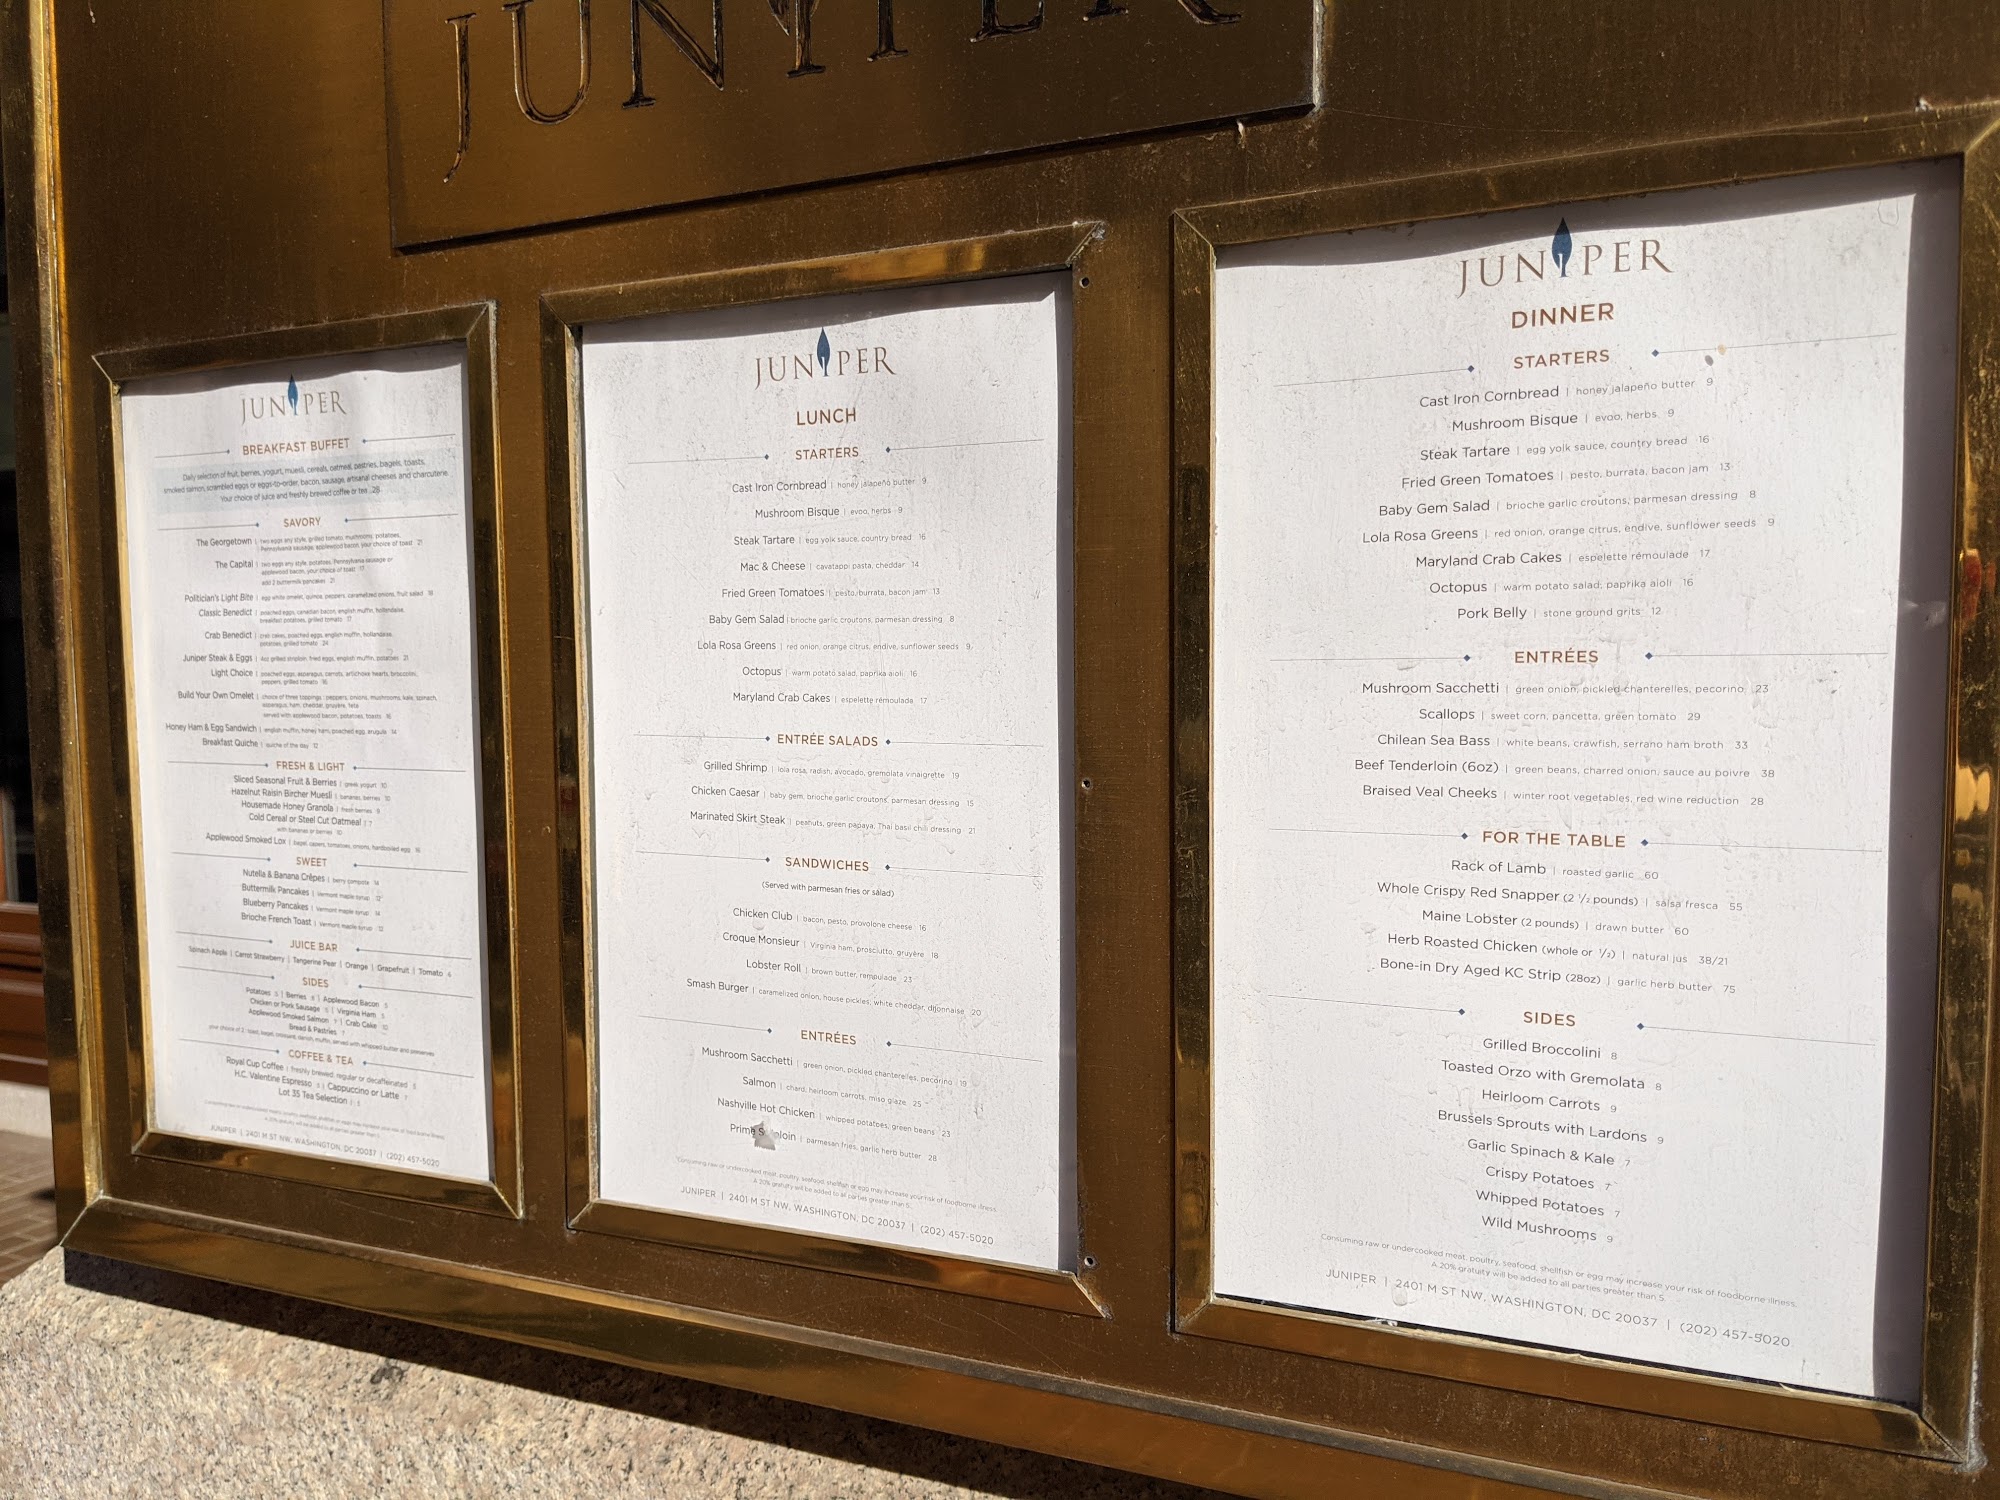 JUNIPER
JUNIPER
BREAKFAST BUFFET
Daily selection of fruit, berries, yogurt, muesli, cereals, oatmeal, pastries, bagels, toasts,
smoked salmon, scrambled eggs or eggs-to-order, bacon, sausage, artisanal cheeses and charcuterie.
Your choice of juice and freshly brewed coffee or tea 28
SAVORY
The Georgetown | two eggs any style, grilled tomato, mushrooms, potatoes,
Pennsylvania sausage, applewood bacon, your choice of toast 21
The Capital | two eggs any style, potatoes, Pennsylvania sausage or
applewood bacon, your choice of toast 17
add 2 buttermilk pancakes 21
Politician's Light Bite | egg white omelet, quinoa, peppers, caramelized onions, fruit salad 18
Classic Benedict | poached eggs, canadian bacon, english muffin, hollandaise,
breakfast potatoes, grilled tomato 17
Crab Benedict | crab cakes, poached eggs, english muffin, hollandaise,
potatoes, grilled tomato 24
Juniper Steak & Eggs | 4oz grilled striploin, fried eggs, english muffin, potatoes 21
Light Choice | poached eggs, asparagus, carrots, artichoke hearts, broccolini,
peppers, grilled tomato 16
Build Your Own Omelet | choice of three toppings: peppers, onions, mushrooms, kale, spinach,
asparagus, ham, cheddar, gruyère, feta
served with applewood bacon, potatoes, toasts 16
Honey Ham & Egg Sandwich | english muffin, honey ham, poached egg, arugula 14
Breakfast Quiche | quiche of the day 12
FRESH & LIGHT
Sliced Seasonal Fruit & Berries | greek yogurt 10
Hazelnut Raisin Bircher Muesli | bananas, berries 10
Housemade Honey Granola | fresh berries 9
Cold Cereal or Steel Cut Oatmeal | 7
with bananas or berries 10
Applewood Smoked Lox | bagel, capers, tomatoes, onions, hardboiled egg 16
SWEET
Nutella & Banana Crêpes | berry compote 14
Buttermilk Pancakes | Vermont maple syrup 12
Blueberry Pancakes | Vermont maple syrup 14
Brioche French Toast | Vermont maple syrup 12
JUICE BAR
Spinach Apple | Carrot Strawberry | Tangerine Pear | Orange | Grapefruit | Tomato 6
SIDES
Potatoes 5 | Berries 8 | Applewood Bacon 5
Chicken or Pork Sausage 5 | Virginia Ham 5
Applewood Smoked Salmon 7 | Crab Cake 10
Bread & Pastries 7
your choice of 2: toast, bagel, croissant, danish, muffin, served with whipped butter and preserves
COFFEE & TEA
Royal Cup Coffee | freshly brewed: regular or decaffeinated 5
H.C. Valentine Espresso 5 | Cappuccino or Latte 7
Lot 35 Tea Selection |
Consuming raw or undercooked meat, poultry, seafood, shellfish or egg may increase your risk of foodborne illness.
A 20% gratuity will be added to all parties greater than 5.
JUNIPER | 2401 M ST NW, WASHINGTON, DC 20037 | (202) 457-5020
JUNIPER
LUNCH
STARTERS
Cast Iron Cornbread | honey jalapeño butter 9
Mushroom Bisque | evoo, herbs 9
Steak Tartare | egg yolk sauce, country bread 16
Mac & Cheese | cavatappi pasta, cheddar 14
Fried Green Tomatoes | pesto, burrata, bacon jam 13
Baby Gem Salad | brioche garlic croutons, parmesan dressing 8
Lola Rosa Greens | red onion, orange citrus, endive, sunflower seeds 9
Octopus | warm potato salad, paprika aioli 16
Maryland Crab Cakes | espelette rémoulade 17
ENTRÉE SALADS
Grilled Shrimp | lola rosa, radish, avocado, gremolata vinaigrette 19
Chicken Caesar | baby gem, brioche garlic croutons, parmesan dressing 15
Marinated Skirt Steak | peanuts, green papaya, Thai basil chili dressing 21
SANDWICHES
(Served with parmesan fries or salad)
Chicken Club | bacon, pesto, provolone cheese 16
Croque Monsieur | Virginia ham, prosciutto, gruyère 18
Lobster Roll | brown butter, remoulade 23
Smash Burger | caramelized onion, house pickles, white cheddar, dijonnaise 20
ENTRÉES
Mushroom Sacchetti | green onion, pickled chanterelles, pecorino 19
Salmon | chard, heirloom carrots, miso glaze 25
Nashville Hot Chicken | whipped potatoes, green beans 23
Prime S loin | parmesan fries, garlic herb butter 28
Consuming raw or undercooked meat, poultry, seafood, shellfish or egg may increase your risk of foodborne illness.
A 20% gratuity will be added to all parties greater than 5.
JUNIPER | 2401 M ST NW, WASHINGTON, DC 20037 | (202) 457-5020
JUNIPER
DINNER
STARTERS
Cast Iron Cornbread | honey jalapeño butter 9
Mushroom Bisque | evoo, herbs 9
Steak Tartare | egg yolk sauce, country bread 16
Fried Green Tomatoes | pesto, burrata, bacon jam 13
Baby Gem Salad | brioche garlic croutons, parmesan dressing 8
Lola Rosa Greens | red onion, orange citrus, endive, sunflower seeds 9
Maryland Crab Cakes | espelette rémoulade 17
Octopus | warm potato salad, paprika aioli 16
Pork Belly | stone ground grits 12
ENTRÉES
Mushroom Sacchetti | green onion, pickled chanterelles, pecorino 23
Scallops | sweet corn, pancetta, green tomato 29
Chilean Sea Bass | white beans, crawfish, serrano ham broth 33
Beef Tenderloin (6oz) | green beans, charred onion, sauce au poivre 38
Braised Veal Cheeks | winter root vegetables, red wine reduction 28
FOR THE TABLE
Rack of Lamb | roasted garlic 60
Whole Crispy Red Snapper (2 ½ pounds) | salsa fresca 55
Maine Lobster (2 pounds) | drawn butter 60
Herb Roasted Chicken (whole or ½) | natural jus 38/21
Bone-in Dry Aged KC Strip (28oz) | garlic herb butter 75
SIDES
Grilled Broccolini 8
Toasted Orzo with Gremolata 8
Heirloom Carrots 9
Brussels Sprouts with Lardons 9
Garlic Spinach & Kale 7
Crispy Potatoes 7
Whipped Potatoes 7
Wild Mushrooms 9
Consuming raw or undercooked meat, poultry, seafood, shellfish or egg may increase your risk of foodborne illness.
A 20% gratuity will be added to all parties greater than 5.
JUNIPER | 2401 M ST NW, WASHINGTON, DC 20037 | (202) 457-5020